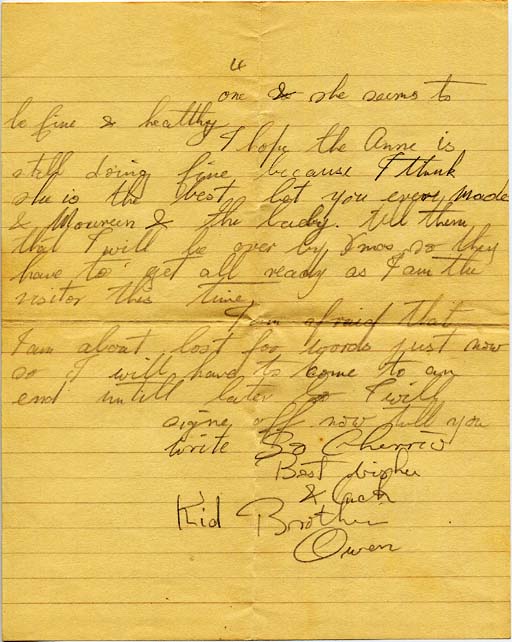 4
one & she seems to
be fine & healthy
I hope the Anne is
still doing fine because I think
she is the best bet you ever made
& Moureen & the baby. tell them
that I will be over by Xmas so they
have to get all ready as I am the
visitor this time.
I am afraid that
I am about lost for words just now
so I will have to come to an
end untill later so I will
signe off now till you
write So Cherrio
Best wishes
& luck
Kid Brother
Owen